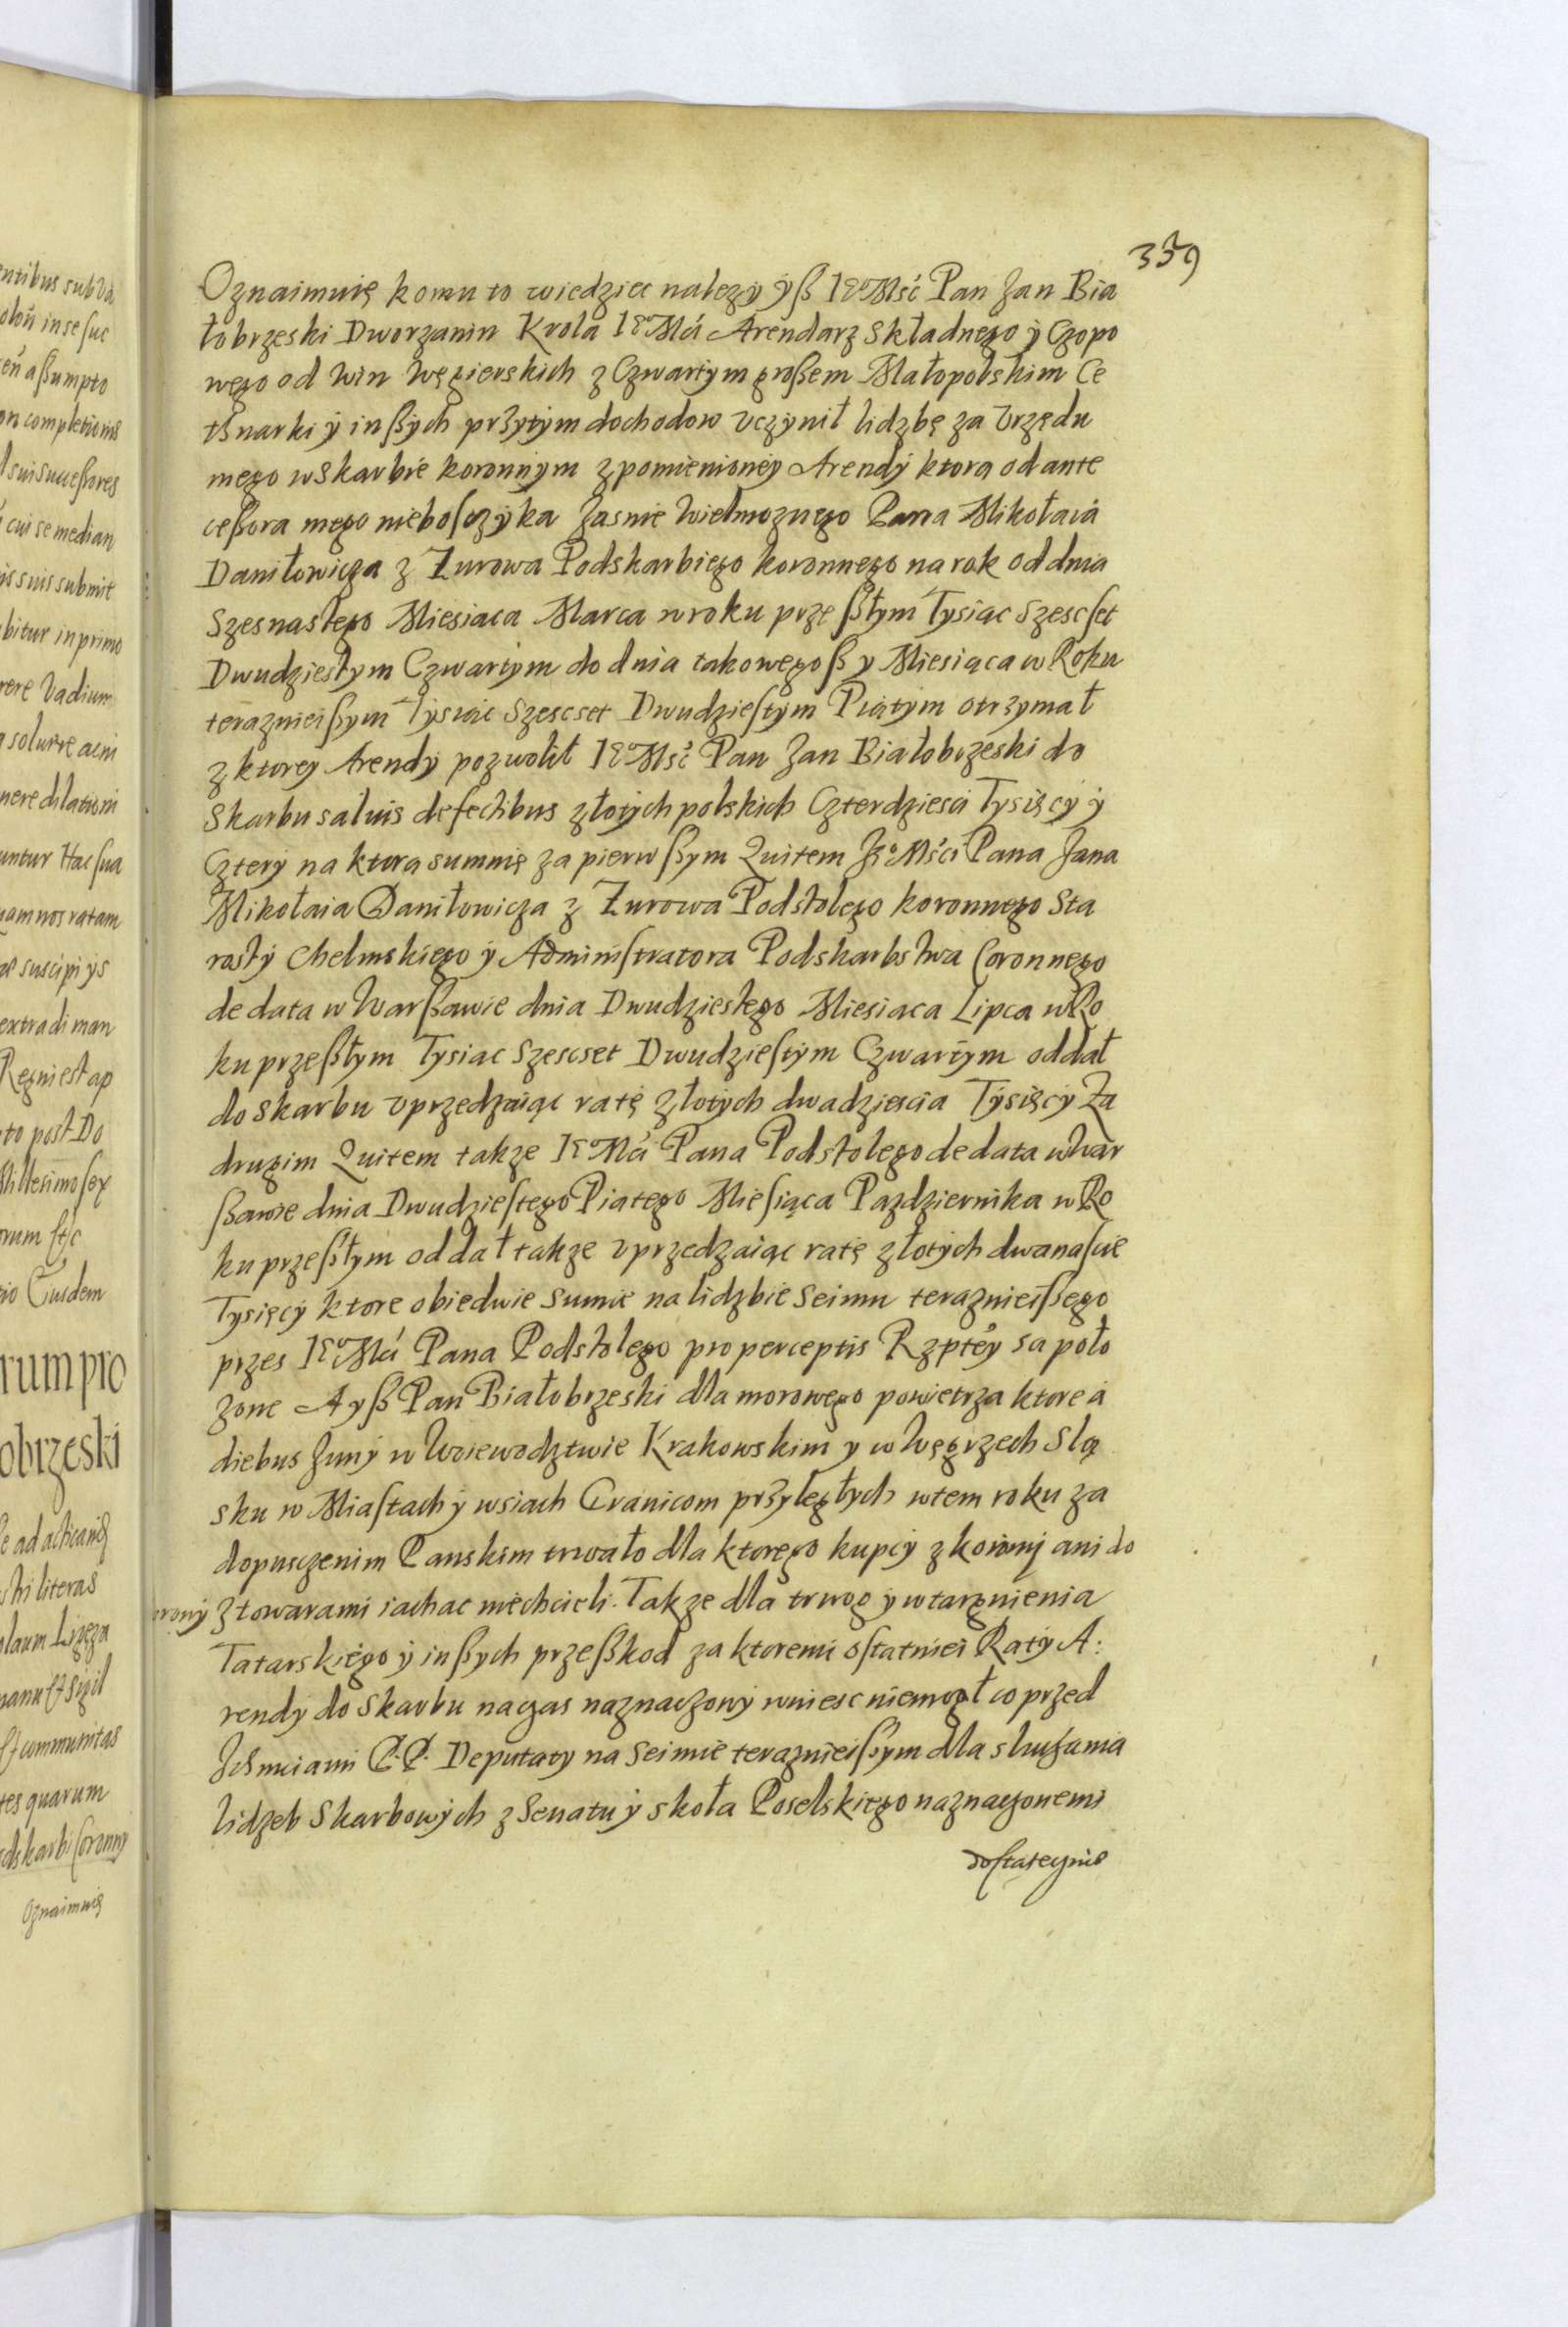 339
Oznaimuię komu to wiedziec nalezy yß Ie͡o Mść Pan Jan Bia
łobrzeski Dworzanin Krola Ie͡o Mći Arendarz Składnego y Czopo
wego od Win Węgierskich z Czwartym großem Małopolskim Ce
tßnarki y inßych przytym dochodow vczynił lidzbę za Vrzędu
mego w Skarbie koronnym z pomienioney Arendy ktorą od ante
ceßora mego nieboſczyka Jasnie Wielmoznego Pana Mikołaia
Daniłowicza z Zurowa Podskarbiego koronnego na rok od dnia
Szesnastego Miesiaca Marca w roku przeßłym Tysiąc Szescſet
Dwudziestym Czwartym do dnia takowegoß y Miesiąca w Roku
teraznieißym Tysiąc Szescset Dwudzieſtym Piątym otrzymał
z ktorey Arendy pozwolił Ie͡o Mść Pan Jan Białobrzeski do
Skarbu saluis defectibus złotych polskich Czterdziesci Tysięcy y
Cztery na ktorą summę za pierwßym Quitem Je͡o Mści Pana Jana
Mikołaia Daniłowicza z Zurowa Podstolego koronnego Sta
rosty Chelmskiego y Adminiſtratora Podskarbstwa Coronnego
de data w Warßawie dnia Dwudziestego Miesiaca Lipca w Ro
ku przeßłym Tysiac Szescset Dwudzieſtym Czwartym oddał
do Skarbu vprzedzaiąc ratę złotych dwadziescia Tysięcy Za
drugim Quitem takze Ie͡o Mći Pana Podstolego de data w War
ßawie dnia Dwudzieſtego Piątego Mieſiąca Pazdziernika w Ro
ku przeßłym oddał takze vprzedzaiąc ratę złotych dwanaſcie
Tysięcy ktore obiedwie Sumie na lidzbie Seimu teraznieißego
przes Ie͡o Mći Pana Podstolego pro perceptis Rzptey sa poło
zone A yß Pan Białobrzeski dla morowego powietrza ktore a
diebus Juny w Woiewodztwie Krakowskim y w Węgrzech Slą
sku w Miaſtach y wsiach Granicom przyległych w tem roku za
dopusczenim Panskim trwało dla ktorego kupcy z korony ani do
orony z towarami iachac niechcieli. Takze dla trwog y wtargnienia
Tatarskiego y inßych przeßkod za ktoremi oſtatniei Raty A:
rendy do Skarbu na czas naznaczony wniesc niemogł co przed
Jchmciami P.P. Deputaty na Seimie teraznieißym dla słuchania
lidzeb Skarbowych z Senatu y s koła Poselskiego naznaczonemi
doſtatecznie